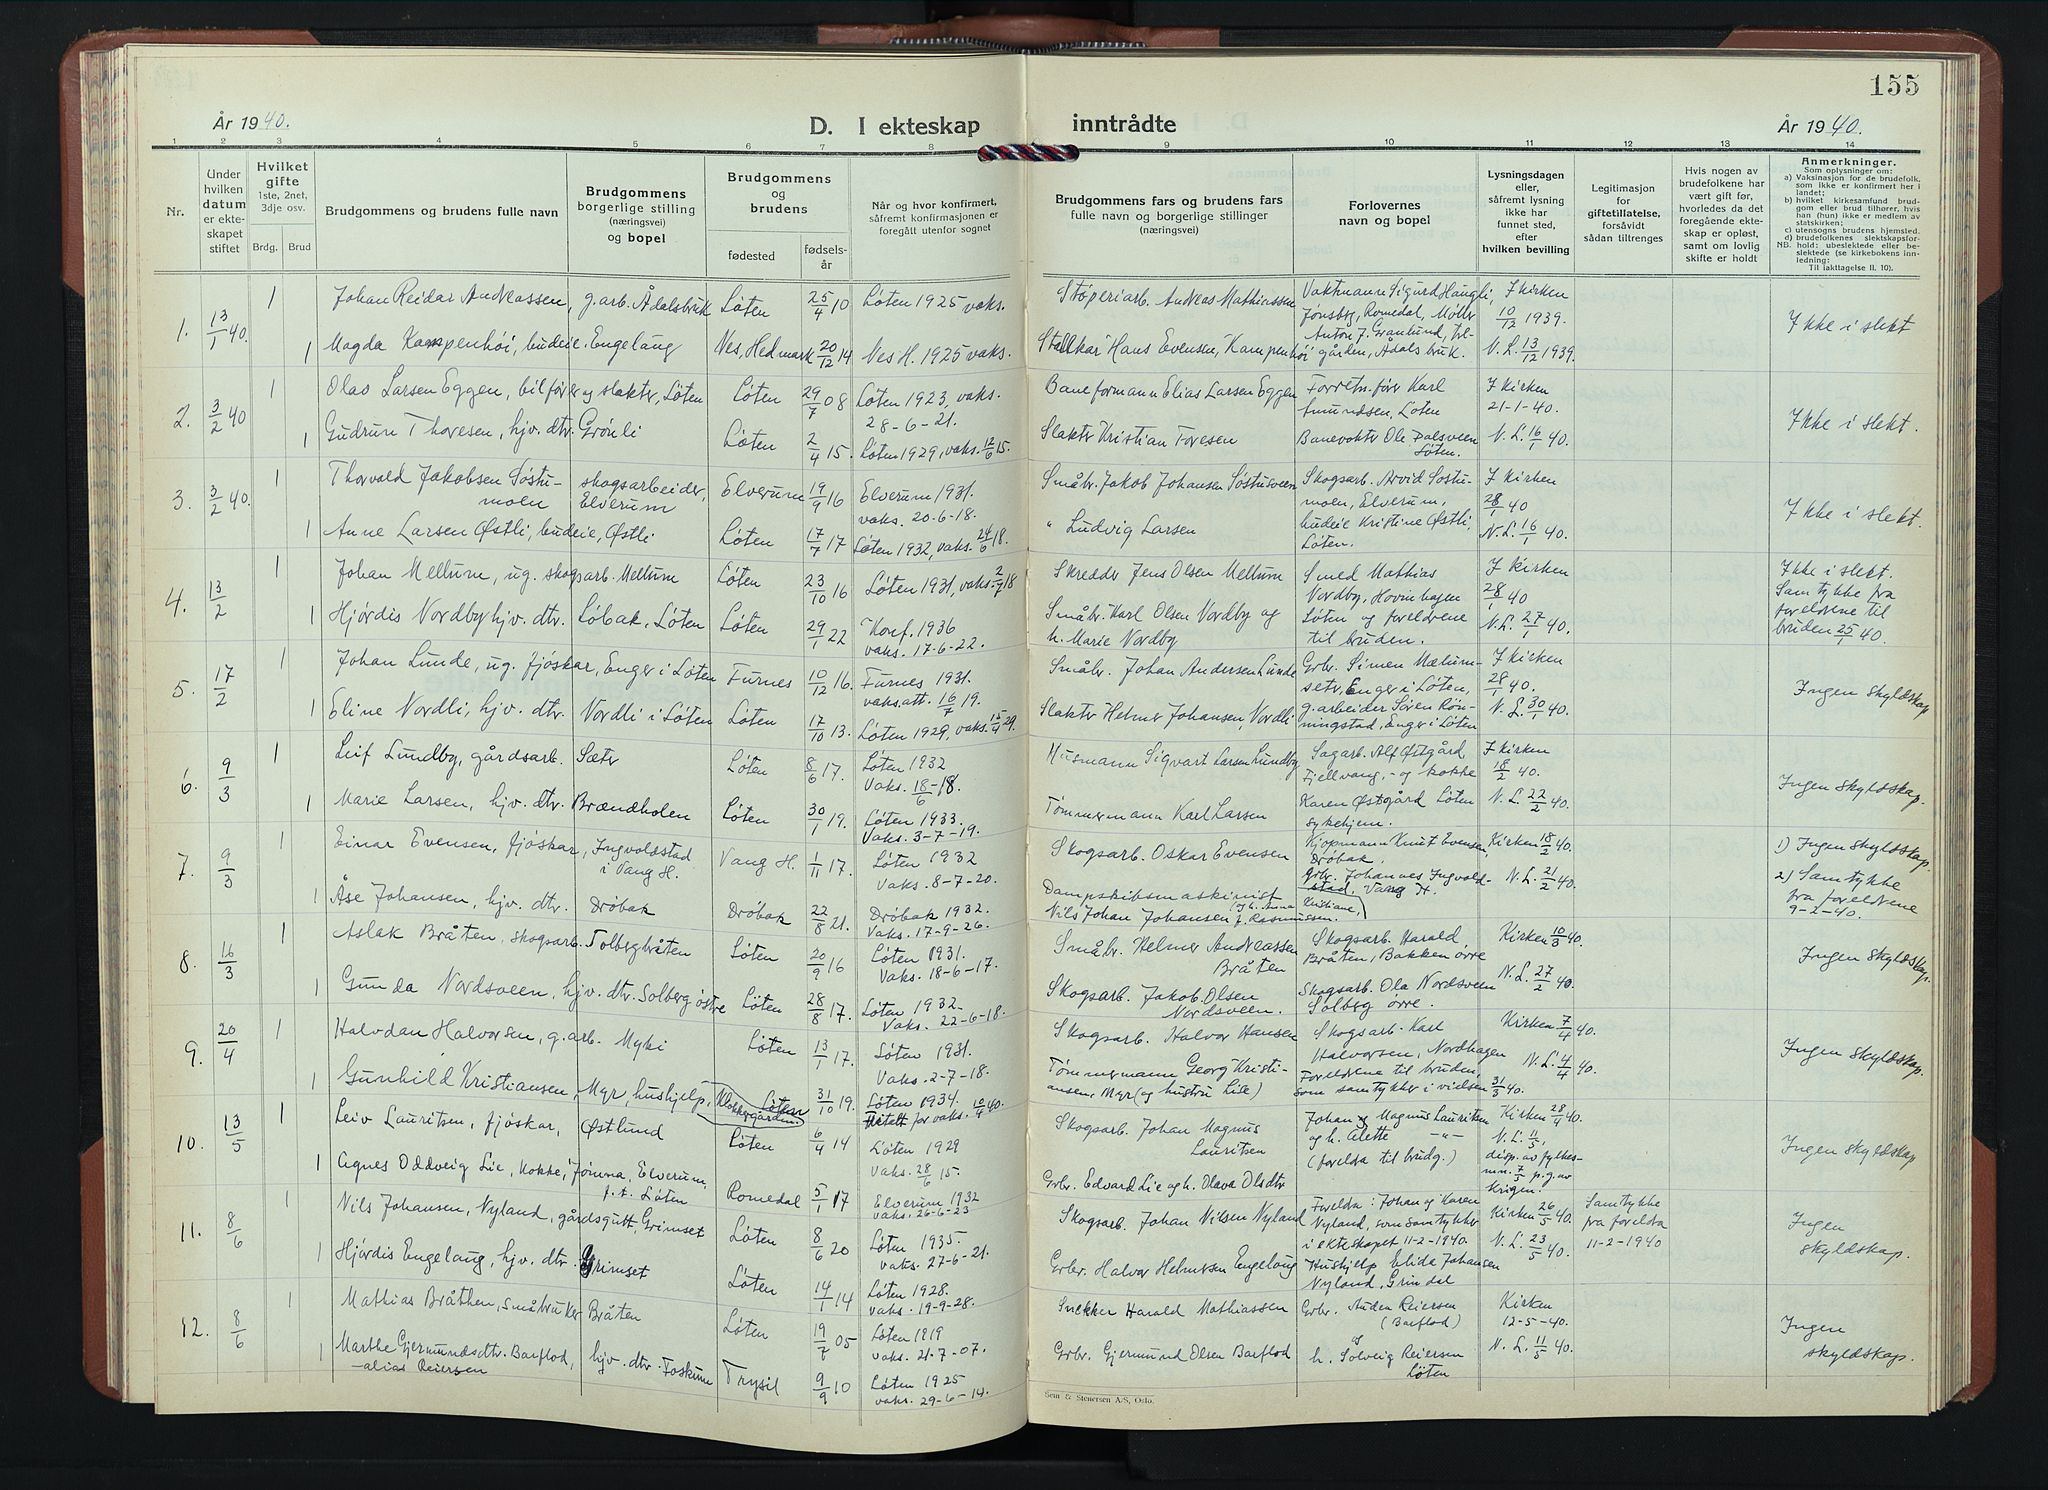 155
År 1940.
D. I ekteskap inntrådte
År 1940.
1 2 3 4 5 6 7 8 9 10 11 12 13 14
Nr.
Under hvilken datum er ekteskapet stiftet
Hvilket gifte 1ste, 2net, 3dje osv.
Brdg. Brud
Brudgommens og brudens fulle navn
Brudgommens borgerlige stilling (næringsvei) og bopel
Brudgommens og brudens
fødested
fødselsår
Når og hvor konfirmert, såfremt konfirmasjonen er foregått utenfor sognet
Brudgommens fars og brudens fars fulle navn og borgerlige stillinger (næringsvei)
Forlovernes navn og bopel
Lysningsdagen eller, såfremt lysning ikke har funnet sted, efter hvilken bevilling
Legitimasjon for giftetillatelse, forsåvidt sådan tiltrenges
Hvis nogen av brudefolkene har vært gift før, hvorledes da det foregående ekteskap er opløst, samt om lovlig skifte er holdt
Anmerkninger.
Som oplysning om:
a) Vaksinasjon for de brudefolk, som ikke er konfirmert her i landet;
b) hvilket kirkesamfund brudgom eller brud tilhører, hvis han (hun) ikke er medlem av statskirken;
c) utensogns brudens hjemsted.
d) brudefolkenes slektskapsforhold: ubeslektede eller beslektede (se kirkebokens innledning:
NB.
Til iakttagelse II. 10).
1. 13/1 40 1 Johan Reidar Andreassen, g.arb. Ådalsbruk Løten 25/4 10 Løten 1925 vaks. Støperiarb. Andreas Mathiassen Vaktmann Sigurd Haugli, I kirken
Jønsbg, Romedal, Møller 10/12 1939. Ikke i slekt
1 Magda Kampenhøi, budeie, Engelaug Nes, Hedmark 20/12 14 Nes H. 1925 vaks. Stallkar Hans Evensen, Kampenhøi Anton J. Granlund,
gården, Ådalsbruk. N.L. 13/12 1939.
2. 3/2 40 1 Olav Larsen Eggen, bilfører og slakter, Løten Løten 29/7 08 Løten 1923, vaks. 28-6-21. Baneformann Elias Larsen Eggen Forretn.fører Karl Amundsen, Løten I kirken 21-1-40. Ikke i slekt.
1 Gudrun Thoresen, hjv. dtr. Grønli Løten 2/4 15. Løten 1929, vaks. 12/6 15. Slakter Kristian Toresen Banevokter Ole Dalsveen Løten. N.L. 16/1 40.
3. 3/2 40. 1 Thorvald Jakobsen Søstumoen skogsarbeider, Elverum Elverum 19/9 16 Elverum 1931. vaks. 20-6-18. Småbr. Jakob Johansen Søstusveen Skogsarb. Arvid Søstumoen, Elverum, I kirken 28/1 40 Ikke i slekt.
1 Anne Larsen Østli, budeie, Østli Løten 17/7 17 Løten 1932, vaks. 24/6 18. " Ludvig Larsen budeie Kristine Østli, Løten. N.L. 16/1 40.
4. 13/2 1 Johan Mellum, ug. skogsarb. Mellum Løten 23/10 16 Løten 1931, vaks. 2/7 18 Skredder Jens Olsen Mellum Smed Mathias Nordby, Hovinhagen I kirken 28/1 40 Ikke i slekt.
Samtykke fra foreldrene til bruden 25/1 40.
1 Hjørdis Nordby hjv. dtr. Løbak, Løten Løten 29/1 22 Konf. 1936 vaks. 17-6-22. Småbr. Karl Olsen Nordby og h. Marie Nordby Løten og foreldrene til bruden. N.L. 27/1 40.
5. 17/2 1 Johan Lunde, ug. fjøskar, Enger i Løten Furnes 10/12 16. Furnes 1931. vaks.att. 16/7 19. Småbr. Johan Andersen Lunde Grbr. Simen Mælumseter, Enger i Løten, I kirken 28/1 40. Ingen skyldskap
1 Eline Nordli, hjv. dtr. Nordli i Løten Løten 17/10 13. Løten 1929, vaks. 15/4 29. Slakter Helmer Johansen, Nordli g.arbeider Søren Rønningstad, Enger i Løten N.L. 30/1 40.
6. 9/3 1 Leif Lundby, gårdsarb. Sæter Løten 8/6 17. Løten 1932 Vaks. 18/6-18. Husmann Sigvart Larsen Lundby Sagarb. Alf Østgård, Fjellvang, - og kokke I kirken 18/2 40. Ingen skyldskap.
1 Marie Larsen, hjv. dtr. Brændholen Løten 30/1 19. Løten 1933. Vaks. 3-7-19. Tømmermann Karl Larsen Karen Østgård Løten sykehjem. N.L. 22/2 40.
7. 9/3 1 Einar Evensen, fjøskar, Ingvoldstad i Vang H. Vang H. 1/11 17. Løten 1932 Vaks. 8-7-20. Skogsarb. Oskar Evensen Kjøpmann Knut Evensen, Drøbak. Kirken 18/2 40. 1) Ingen skyldskap.
2) Samtykke fra foreldrene 9-2-40.
1 Åse Johansen, hjv. dtr. Drøbak Drøbak 22/8 21. Drøbak 1932. Vaks. 17-9-26. Dampskibsmaskinist Nils Johan Johansen (og h. Anna Kristiane, f. Rasmussen. Grbr. Johannes Ingvoldstad, Vang H. N.L. 21/2 40.
8. 16/3 1 Aslak Bråten, skogsarb. Tolbergbråten Løten 20/9 16 Løten 1931. Vaks. 18-6-17. Småbr. Helmer Andreassen Bråten Skogsarb. Harald Bråten, Bakken øvre Kirken 10/3 40. Ingen skyldskap.
1 Gunda Nordsveen, hjv. dtr. Solberg østre Løten 28/8 17. Løten 1932. Vaks. 22-6-18. Skogsarb. Jakob Olsen Nordsveen. Skogsarb. Ola Nordsveen Solberg øvre. N.L. 27/2 40.
9. 20/4 1 Halvdan Halvorsen, g.arb. Myki Løten 13/1 17. Løten 1931. Vaks. 2-7-18. Skogsarb. Halvor Hansen Skogsarb. Karl Halvorsen, Nordhagen Kirken 7/4 40. Ingen skyldskap.
1 Gunhild Kristiansen, Myr, hushjelp, Klokkergården Løten 31/10 19. Løten 1934. Attest for vaks. 10/4 40. Tømmermann Georg Kristiansen, Myr (og hustru Lise) Foreldrene til bruden, som samtykker i vielsen 31/3 40. N.L. 4/4 40.
10. 13/5 1 Leiv Lauritsen, fjøskar, Østlund Løten 6/4 14 Løten 1929 Vaks. 28/6 15. Skogsarb. Johan Magnus Lauritsen Johan Magnus Lauritsen og h. Alette -"- (foreldra til brudg.) Kirken 28/4 40. Ingen skyldskap
1 Agnes Oddveig Lie, kokke, Jømna, Elverum, p.t. Løten Romedal 5/1 17 Elverum 1932 vaks. 26-6-23 Grbr. Edvard Lie og h. Olava Olsdtr N.L. 11/5, disp. av fylkesmn. 7/5 p.g.av krigen.
11. 8/6 1 Nils Johansen, Nyland, gårdsgutt, Grimset Løten 8/6 20 Løten 1935. vaks. 27-6-21. Skogsarb. Johan Nilsen Nyland Foreldra: Johan og Karen Nyland, som samtykker i ekteskapet 11-2-1940. Kirken 26/5 40. Samtykke fra foreldra 11-2-1940 Ingen skyldskap.
1 Hjørdis Engelaug, hjv. dtr. Grimset Løten 14/1 14 Løten 1928. vaks. 19-9-28. Grbr. Halvor Helmersen Engelaug Hushjelp Elida Johansen Nyland, Grindal N.L. 23/5 40.
12. 8/6 1 Mathias Bråthen, småbruker Bråten Løten 19/7 05 Løten 1819 vaks. 21-7-07. Snekker Harald Mathiassen Grbr. Auden Reiersen (Barflod) Kirken 12-5-40. Ingen skyldskap.
1 Marthe Gjermundsdtr. Barflod, alias Reiersen hjv. dtr. Foskum Trysil 9/9 10 Løten 1925 vaks. 29-6-14. Grbr. Gjermund Olsen Barflod og h. Solveig Reiersen Løten N.L. 11/5 40.
Sem & Stenersen A/S, Oslo.